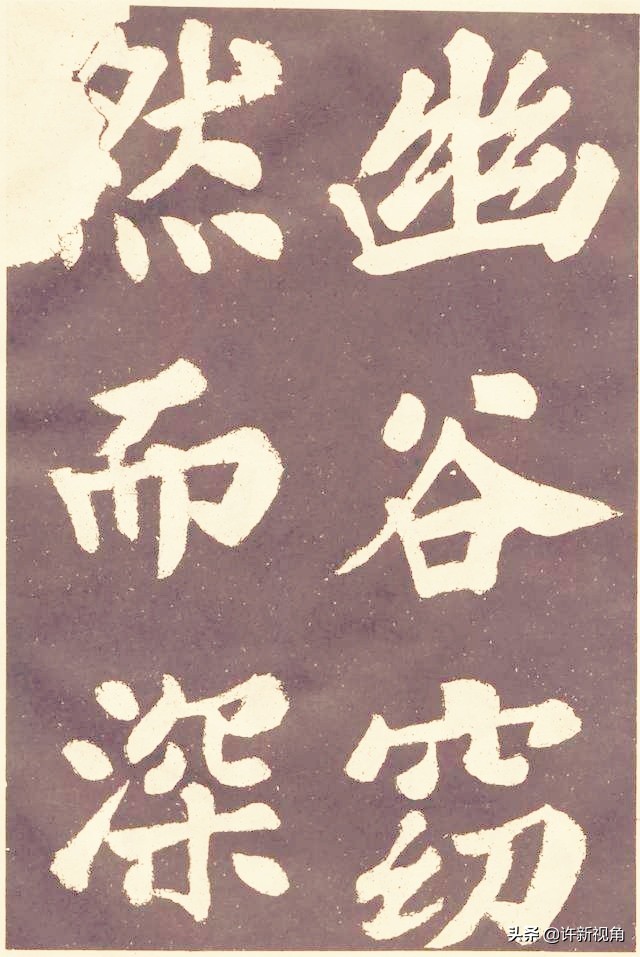 幽谷窈
然而深
头条 @许新视角